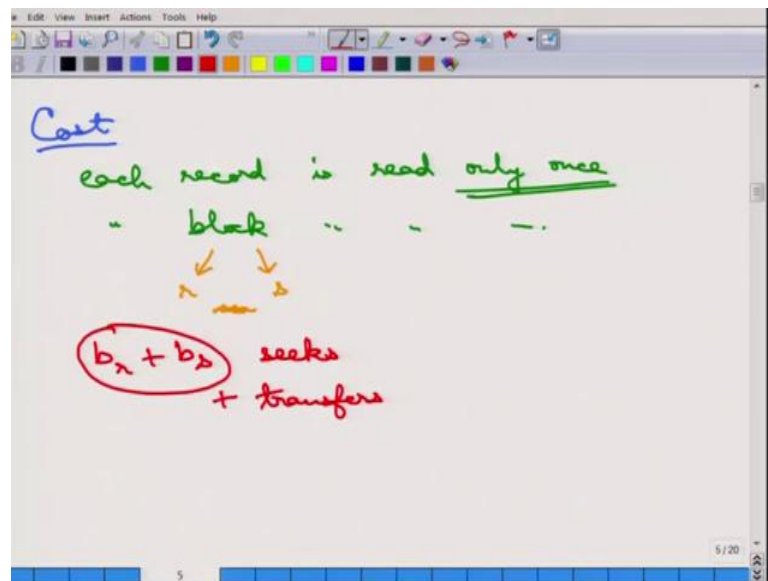 Edit View Insert Actions Tools Help
Cost
each record is read only once
" block " " —.
r s
b_r + b_s seeks
+ transfers
5/20
5